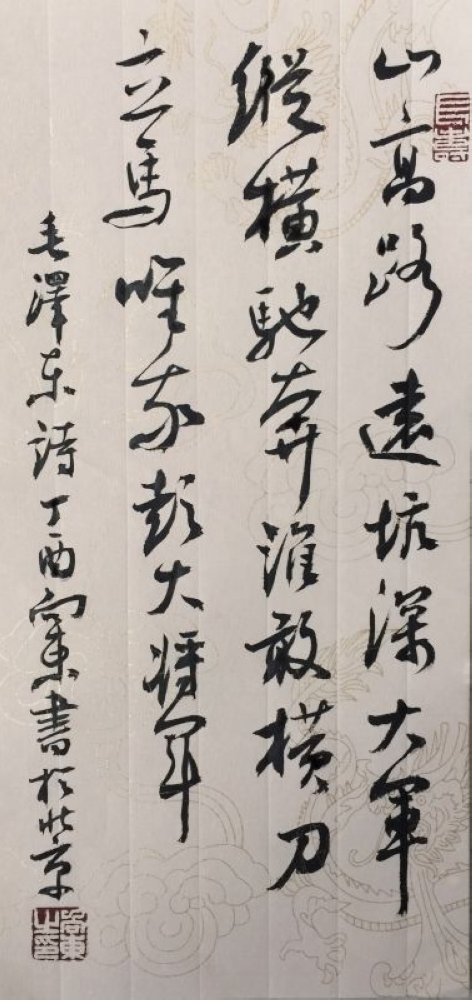 山高路遠坑深大軍
縱橫馳奔誰敢橫刀
立馬唯我彭大將軍
毛澤東詩丁酉書於北京